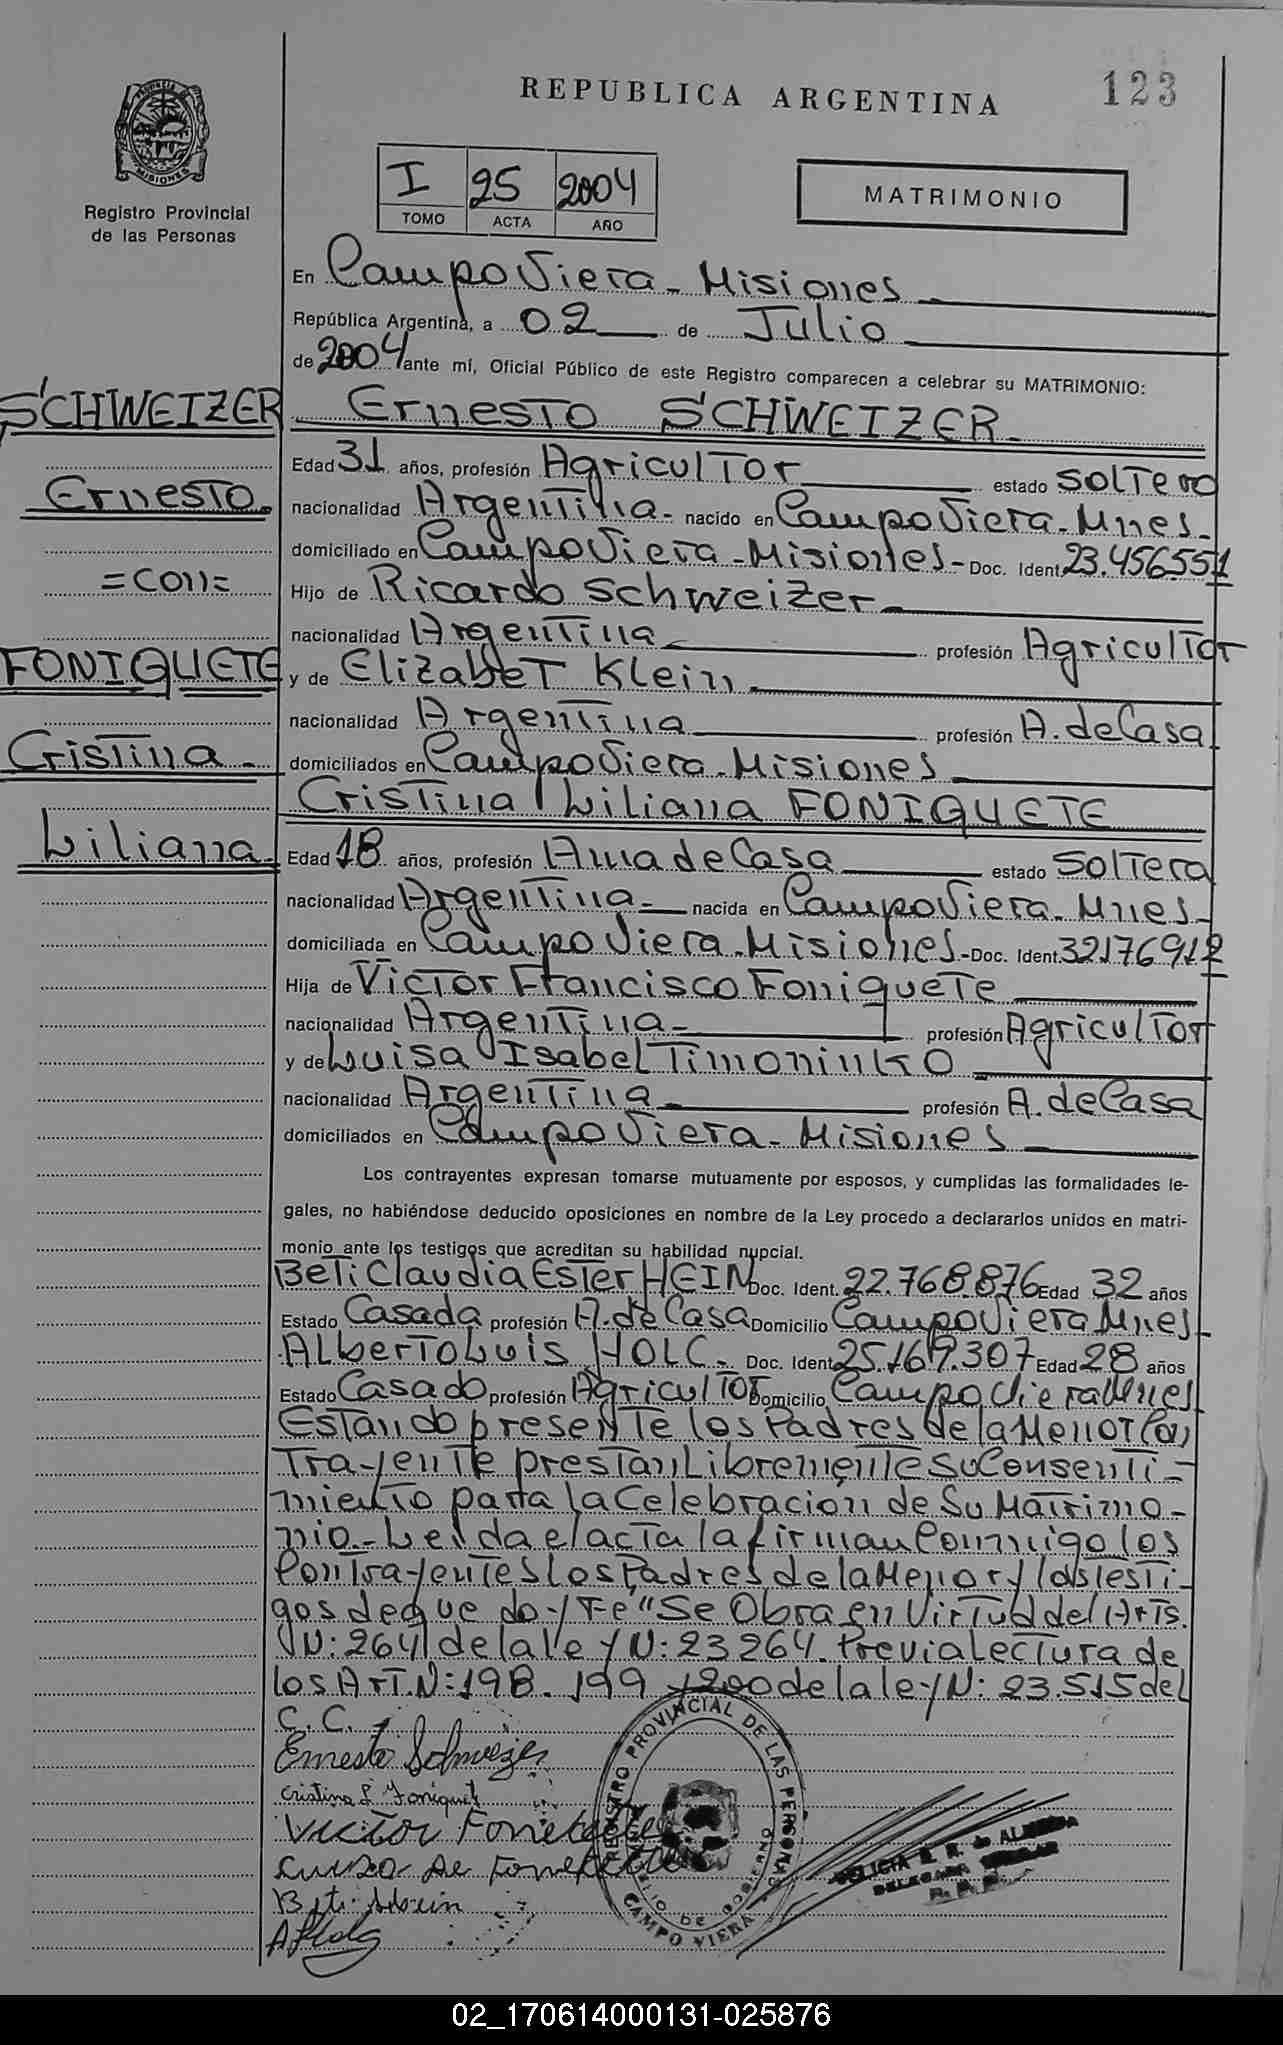 REPUBLICA ARGENTINA
123
PROVINCIA DE MISIONES
Registro Provincial
de las Personas
I 25 2004
TOMO ACTA AÑO
MATRIMONIO
En Campo Viera - Misiones
República Argentina, a 02 de Julio
de 2004 ante mí, Oficial Público de este Registro comparecen a celebrar su MATRIMONIO:
SCHWEIZER
Ernesto
=con=
FONIQUETE
Cristina -
Liliana -
Ernesto SCHWEIZER -
Edad 31 años, profesión Agricultor estado Soltero
nacionalidad Argentina - nacido en Campo Viera - Mnes -
domiciliado en Campo Viera - Misiones - Doc. Ident. 23.456.551
Hijo de Ricardo Schweizer -
nacionalidad Argentina profesión Agricultor
y de Elizabet Klein
nacionalidad Argentina profesión A. de Casa
domiciliados en Campo Viera - Misiones
Cristina Liliana FONIQUETE
Edad 18 años, profesión Ama de Casa estado Soltera
nacionalidad Argentina - nacida en Campo Viera - Mnes -
domiciliada en Campo Viera - Misiones - Doc. Ident. 32176912
Hija de Victor Francisco Foniquete
nacionalidad Argentina - profesión Agricultor
y de Luisa Isabel Timoninko
nacionalidad Argentina - profesión A. de Casa
domiciliados en Campo Viera - Misiones
Los contrayentes expresan tomarse mutuamente por esposos, y cumplidas las formalidades le-
gales, no habiéndose deducido oposiciones en nombre de la Ley procedo a declararlos unidos en matri-
monio ante los testigos que acreditan su habilidad nupcial.
Beti Claudia Ester HEIN Doc. Ident. 22.768.876 Edad 32 años
Estado Casada profesión A. de Casa Domicilio Campo Viera Mnes -
Alberto Luis HOLC - Doc. Ident. 25.169.307 Edad 28 años
Estado Casado profesión Agricultor Domicilio Campo Viera Mnes
Estando presente los Padres de la Menor Con
Trayente prestan Libremente su Consenti-
miento para la Celebración de su Matrimo-
nio - Leida el acta la firman Conmigo los
Contrayentes los Padres de la Menor y los testi-
gos de que doy Fe" Se Obra en Virtud del Arts.
N: 264 de la ley N: 23264. Previa Lectura de
los Art. N: 198 - 199 y 200 de la ley N: 23.515 del
C. C. -
Ernesto Schweizer
Cristina L Foniquet
Victor
Luisa de
A Holc
REGISTRO PROVINCIAL DE LAS PERSONAS
DE GOBIERNO
CAMPO VIERA
DELICIA E. R. de ALMEIDA
DELEGADA TITULAR
02_170614000131-025876